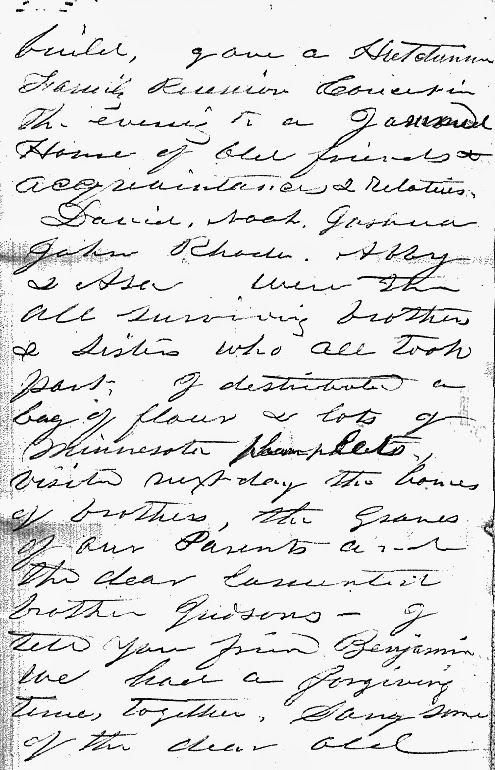 build, gave a Hutchinson
Family Reunion Concert in
the evening to a Jammed
House of Old friends &
acquaintances & Relatives.
David, Noah, Joshua
John Rhoda. Abby
& Asa were the
all surviving brothers
& Sisters who all took
part. I distributed a
bag of flour & lots of
Minnesota phamphlets,
visited next day the homes
of brothers, the Graves
of our Parents and
the dear lamented
brother Judsons — I
tell you friend Benjamin
we had a forgiving
time, together. Sang some
of the dear old